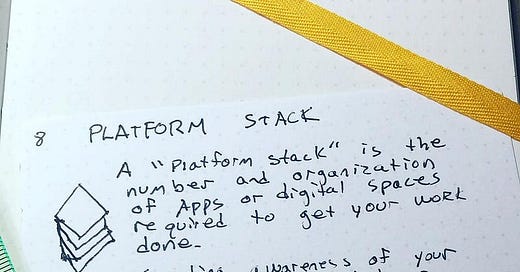 8 PLATFORM STACK
A "Platform stack" is the
number and organization
of Apps or digital spaces
required to get your work
done.
awareness of your